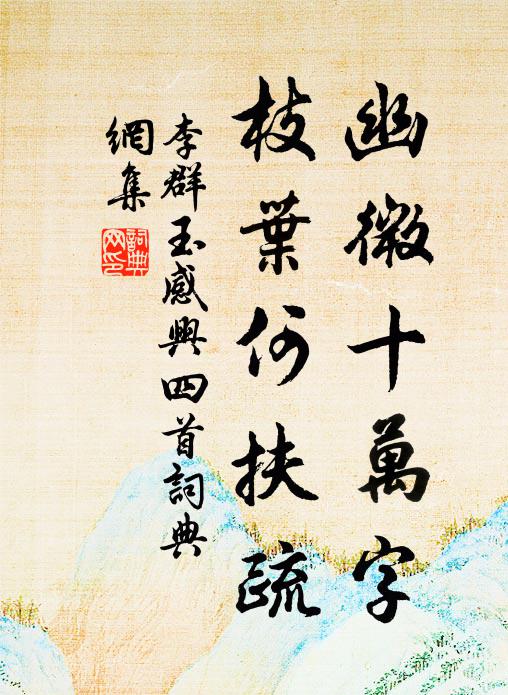 幽微十萬字
枝葉何扶疏
李群玉感興四首詞典
網集
詞典
网印